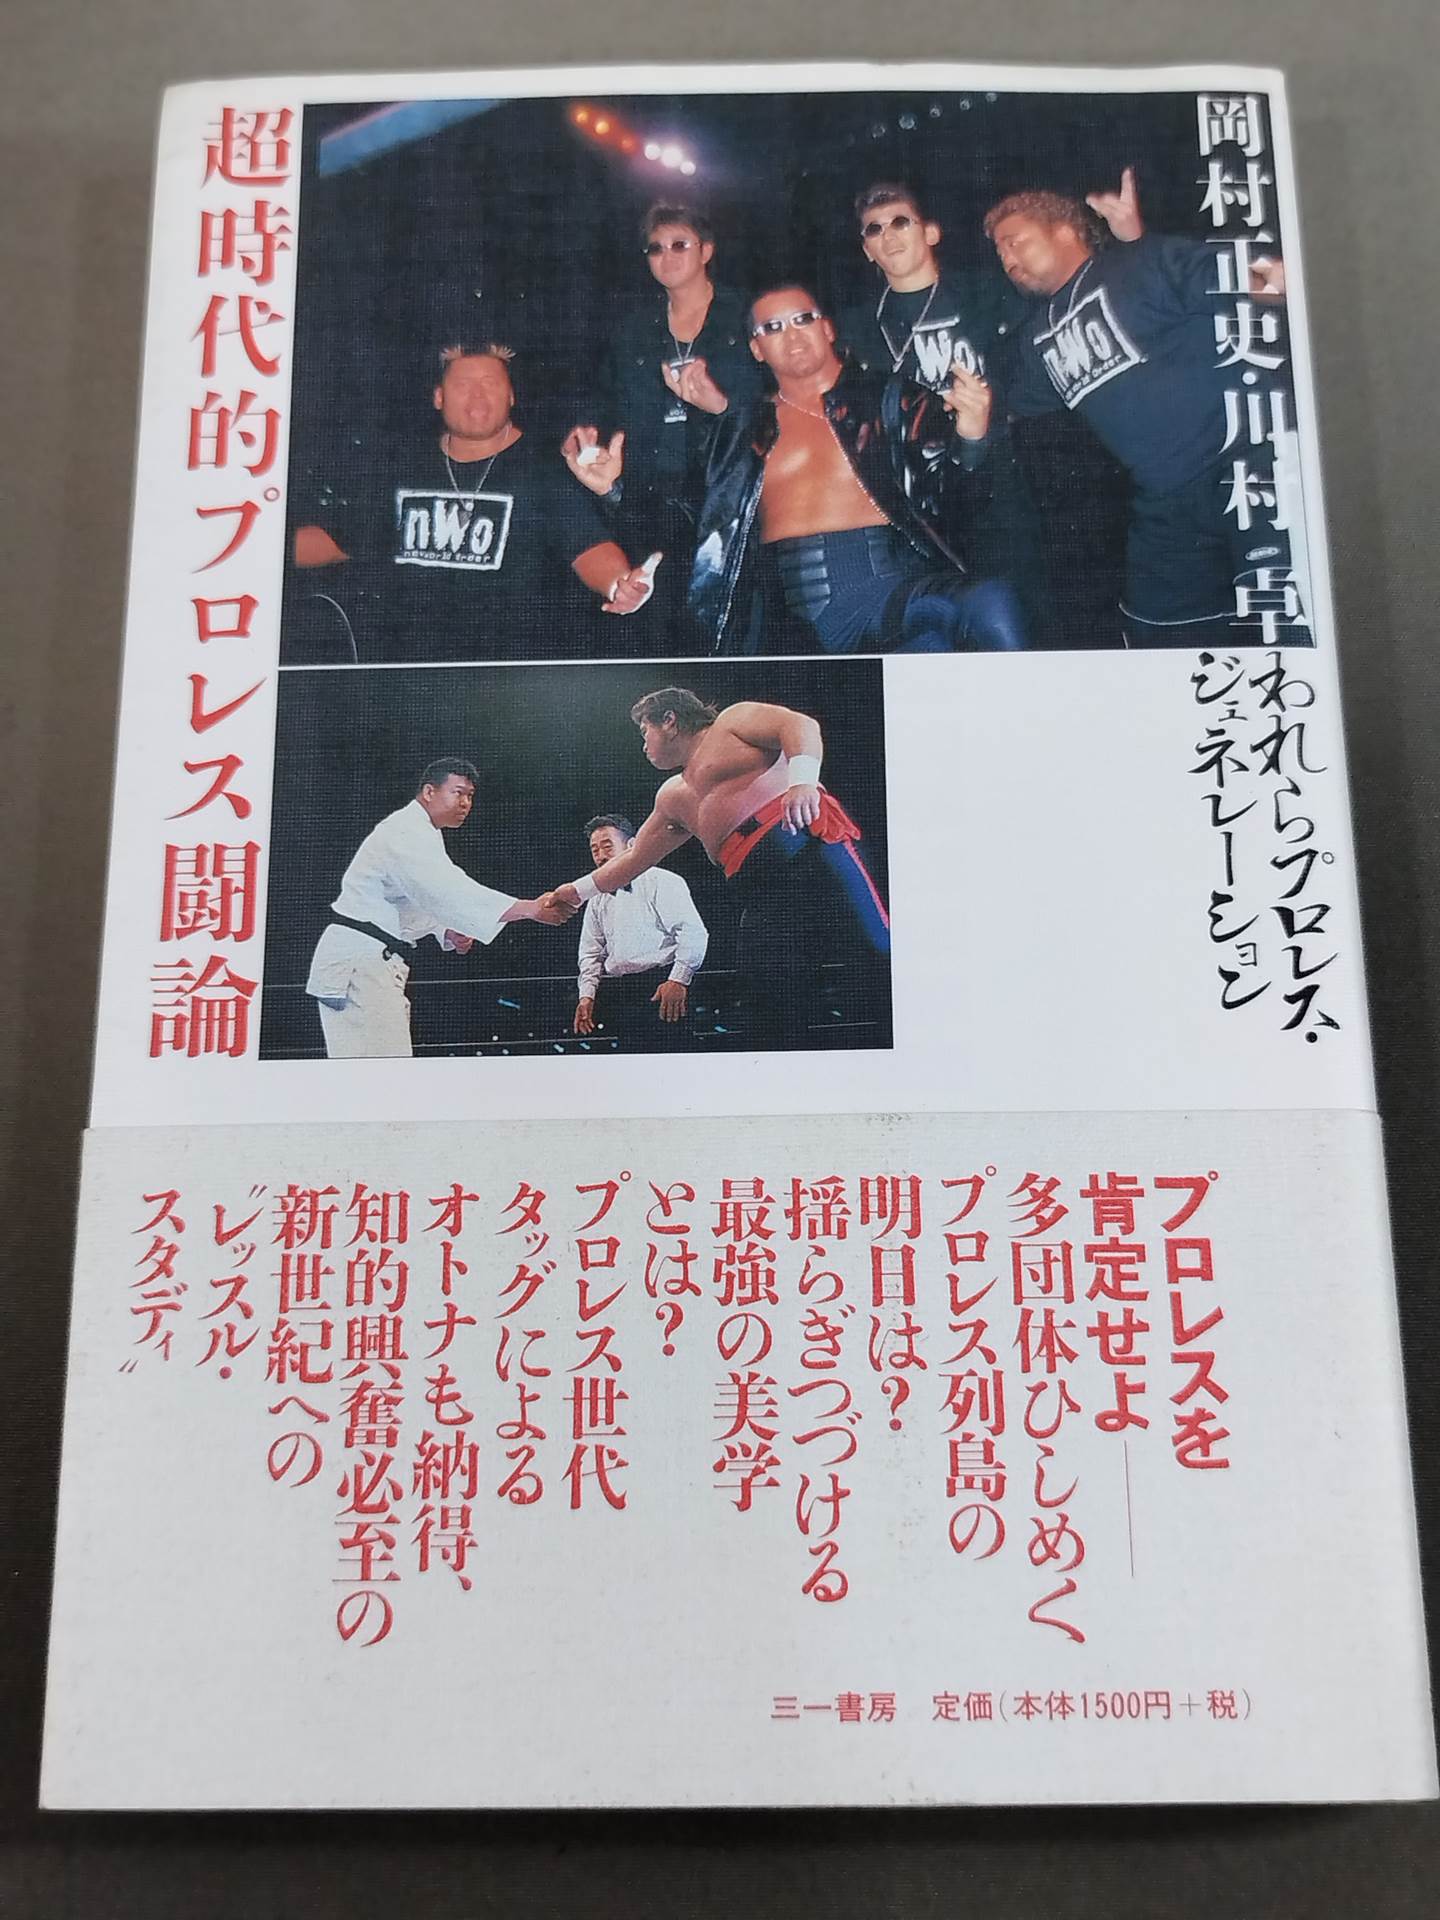 岡村正史・川村 卓
われらプロレス・
ジェネレーション
超時代的プロレス闘論
nWo
new world order
nWo
nWo
プロレスを
肯定せよ――
多団体ひしめく
プロレス列島の
明日は?
揺らぎつづける
最強の美学
とは?
プロレス世代
タッグによる
オトナも納得、
知的興奮必至の
新世紀への
〝レッスル・
スタディ〟
三一書房 定価(本体1500円+税)